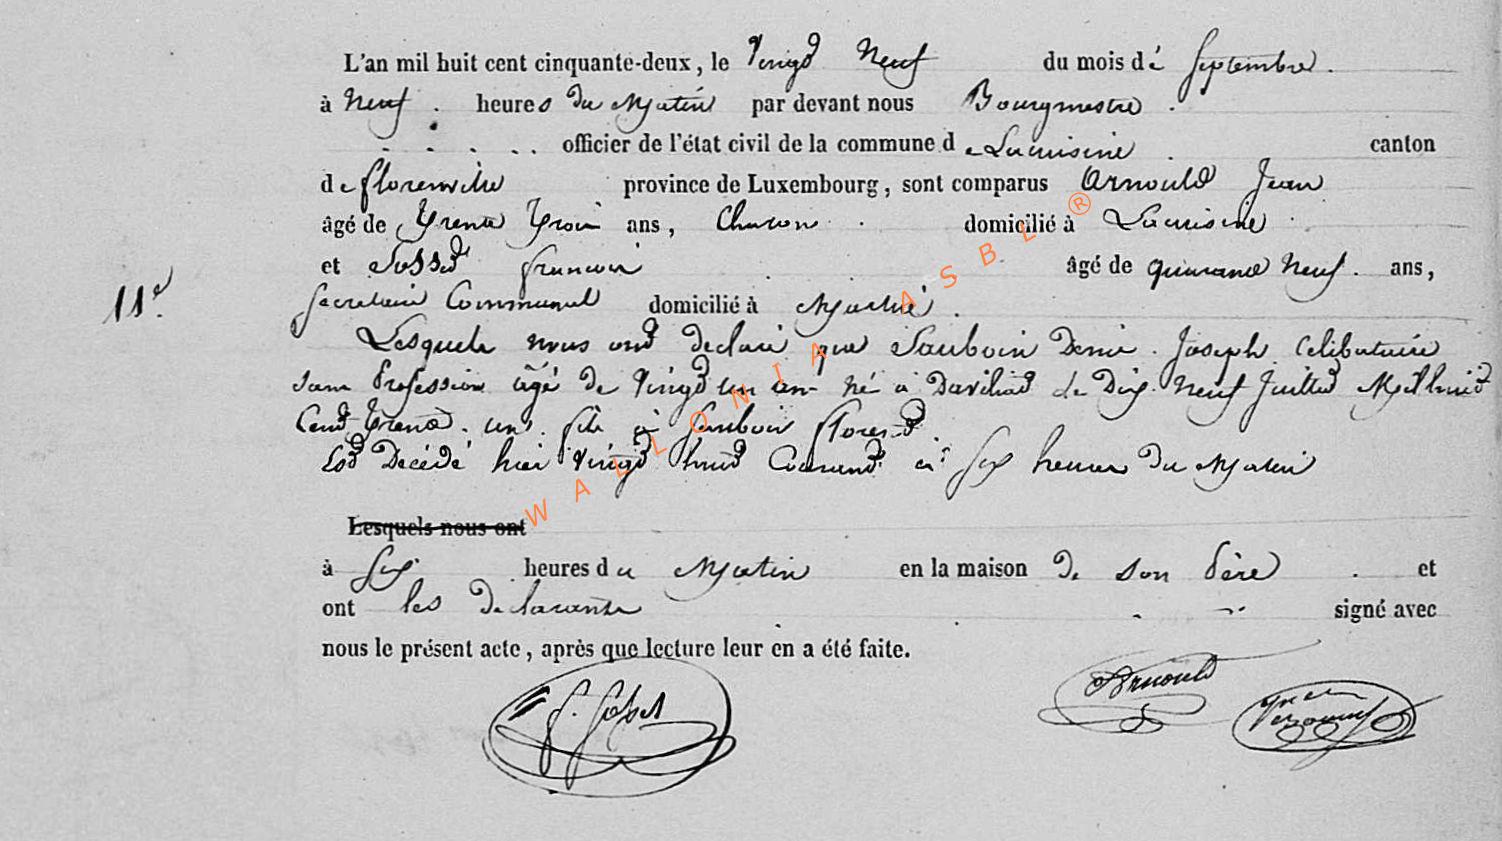 L'an mil huit cent cinquante-deux, le Vingt Neuf du mois de Septembre.
à Neuf. heures du Matin par devant nous Bourgmestre.
officier de l'état civil de la commune de Lacuisine. canton
de florenville province de Luxembourg, sont comparus Arnould Jean
âgé de Trente Trois ans, Charon domicilié à Lacuisine
et Josset francois âgé de quarante Neuf. ans,
11e.
Secretaire Communal domicilié à
Lesquels nous ont declaré que Sauboin Denis. Joseph Celibataire
sans Profession âgé de Vingt un an né à le Dix. Neuf Juillet Mil huit
Cent trente. un. fils à Sauboin florent
Est Décédé hier Vingt huit Courant à Six heures du Matin
Lesquels nous ont
à Six heures du Matin en la maison de son Père et
ont les declarants signé avec
nous le présent acte, après que lecture leur en a été faite.
Arnould
WALLONIA ASBL ®